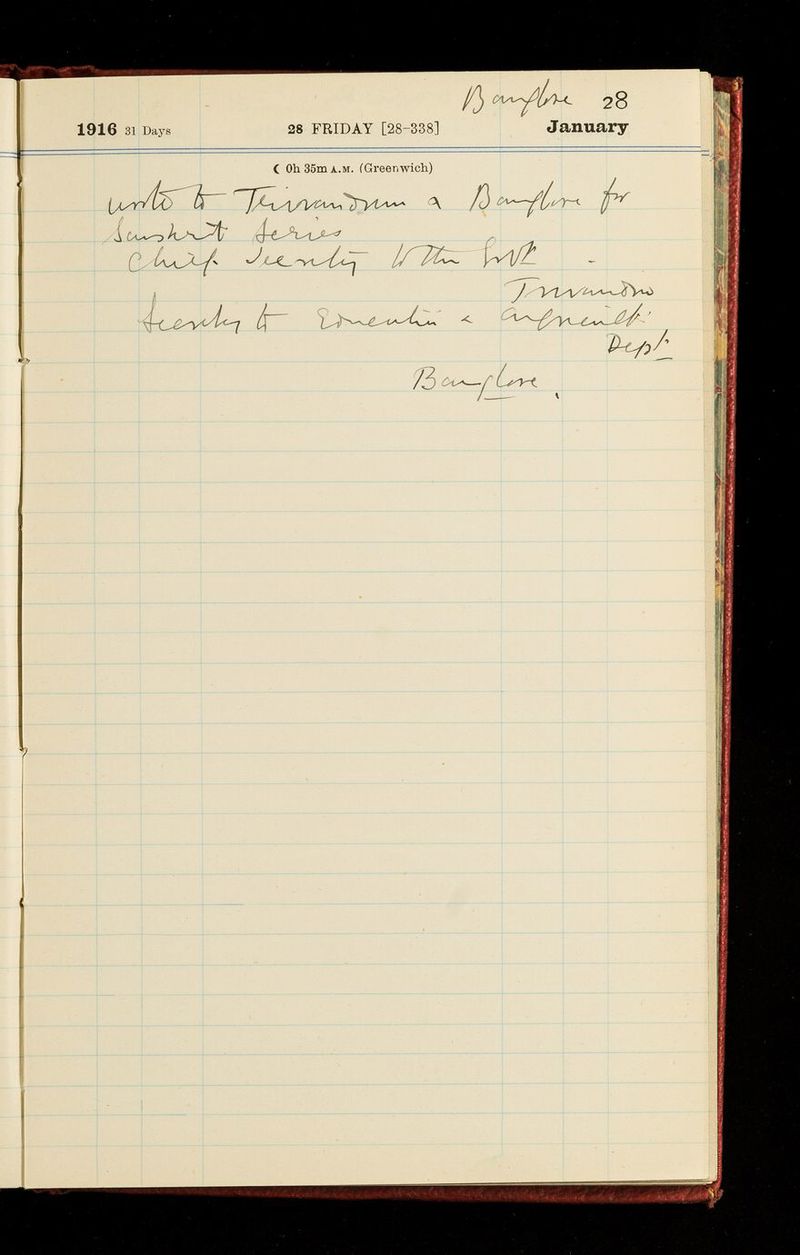 Bangalore 28
1916 31 Days 28 FRIDAY [28-338] January
☾ 0h 35m A.M. (Greenwich)
write to Trivandrum & Bangalore for
Sanskrit Series
Chief Secretary to the Govt -
Trivandrum
Secretary to Education &
Dept
Bangalore